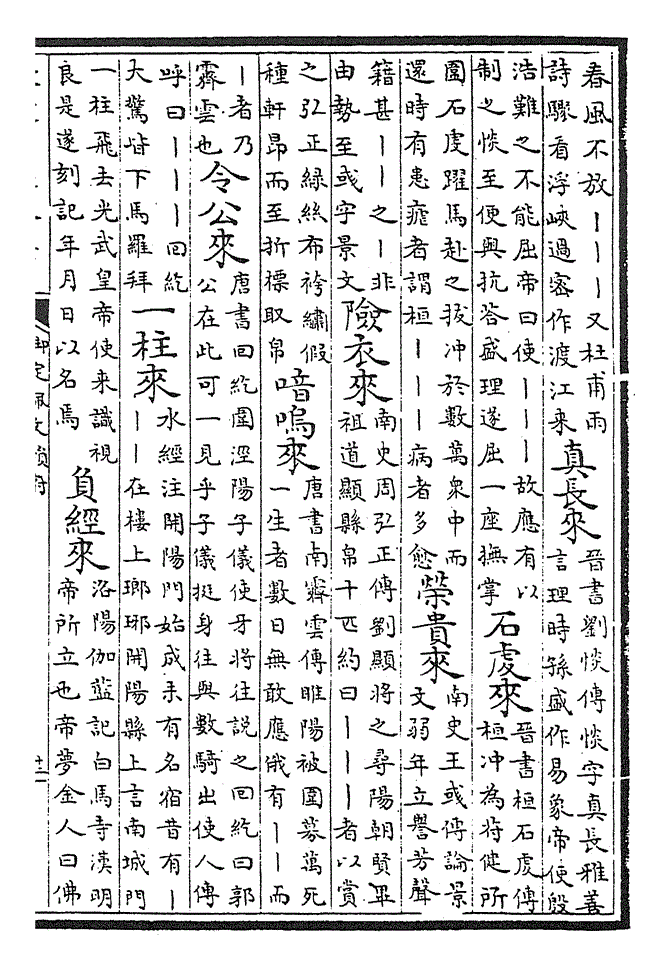 春風不放丨丨丨又杜甫雨
詩驟看浮峽過密作渡江来
真長來
晉書劉惔傳惔字真長雅善
言理時孫盛作易象帝使殷
浩難之不能屈帝曰使丨丨丨故應有以
制之惔至便與抗荅盛理遂屈一座撫掌
石虔來
晉書桓石虔傳
桓冲為苻健所
圍石虔躍馬赴之拔冲於數萬衆中而
還時有患瘧者謂桓丨丨丨病者多愈
榮貴來
南史王彧傳論景
文弱年立譽芳聲
籍甚丨丨之丨非
由勢至彧字景文
險衣來
南史周弘正傳劉顯將之尋陽朝賢畢
祖道顯縣帛十匹約曰丨丨丨者以賞
之弘正緑絲布袴繡假
種軒昂而至折標取帛
喑嗚來
唐書南霽雲傳睢陽被圍募萬死
一生者數日無敢應俄有丨丨而
丨者乃
霽雲也
令公來
唐書回紇圍涇陽子儀使牙將往説之回紇曰郭
公在此可一見乎子儀挺身往與數騎出使人傳
呼曰丨丨丨回紇
大驚皆下馬羅拜
一柱來
水經注開陽門始成未有名宿昔有丨
丨丨在樓上瑯琊開陽縣上言南城門
一柱飛去光武皇帝使来識視
良是遂刻記年月日以名焉
負經來
洛陽伽藍記白馬寺漢明
帝所立也帝夢金人曰佛
御定佩文韻府